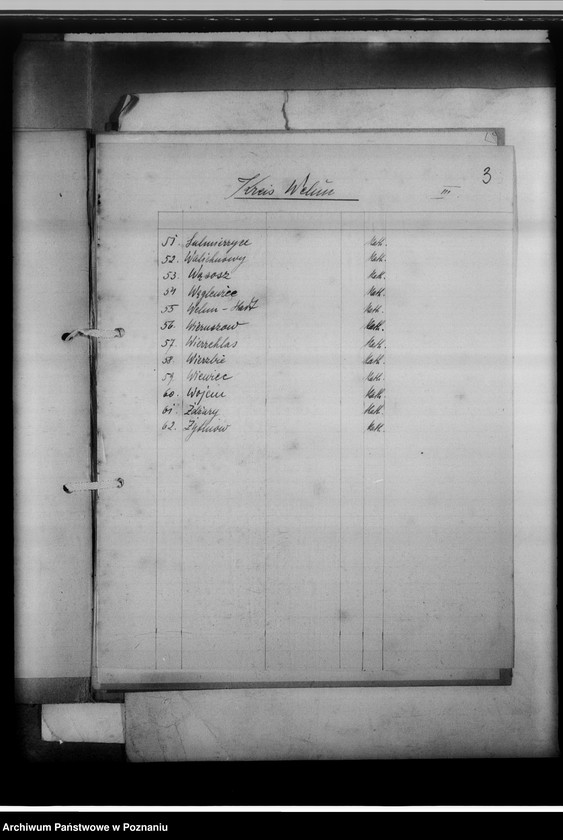 3
Kreis Welun III
51. Sulmierzyce Kath.
52. Walichnowy Kath.
53. Wąsosz Kath.
54 Węglewice Kath.
55 Welun - Stadt Kath.
56. Wieruszow Kath.
57. Wierzchlas Kath.
58. Wierzbie Kath.
59. Wiewiec Kath.
60. Wojcin Kath.
61. Żdżary Kath.
62. Żytniow Kath.
Archiwum Państwowe w Poznaniu